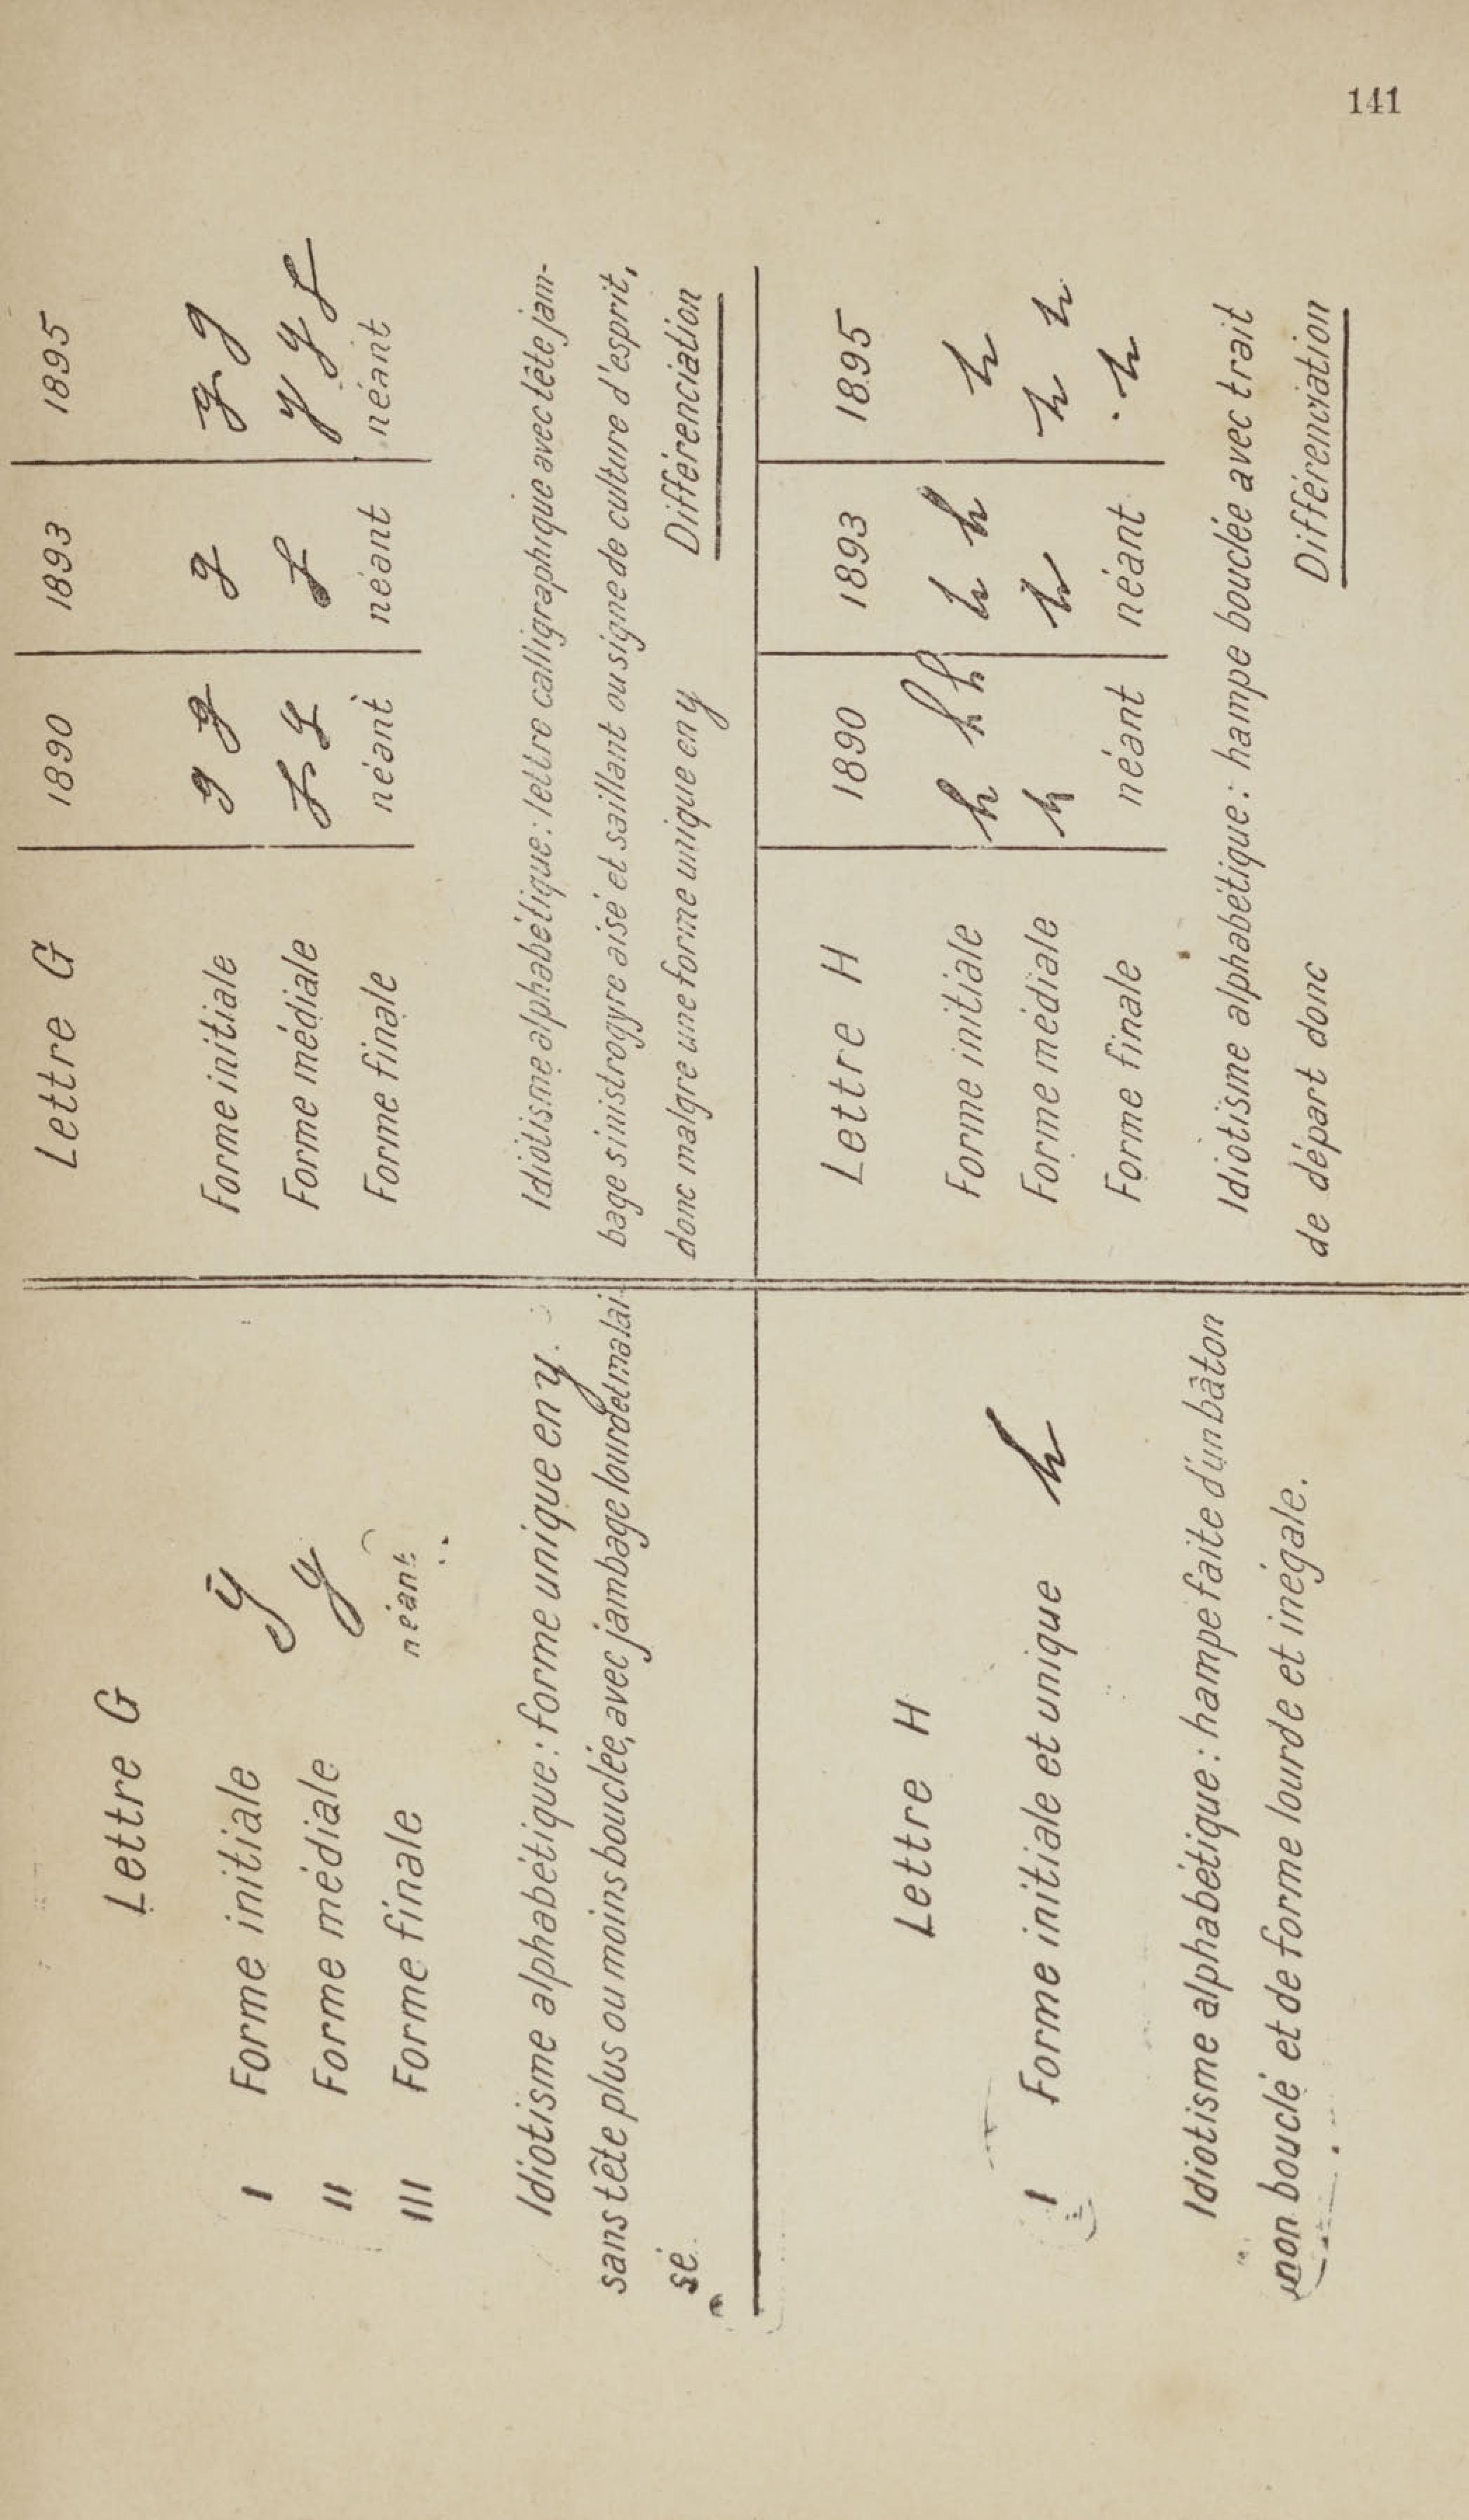 141
Lettre G
I Forme initiale y
II Forme médiale y
III Forme finale néant
Idiotisme alphabétique : forme unique en y.
sans tête plus ou moins bouclée, avec jambage lourd et malai-
sé.
Lettre G 1890 1893 1895
Forme initiale g g g g g
Forme médiale g g g g g g
Forme finale néant néant néant
Idiotisme alphabétique : lettre calligraphique avec tête jam-
bage sinistrogyre aisé et saillant ou signe de culture d'esprit,
donc malgre une forme unique en y Différenciation
Lettre H
I Forme initiale et unique h
Idiotisme alphabétique : hampe faite d'un bâton
non bouclé et de forme lourde et inégale.
Lettre H 1890 1893 1895
Forme initiale h h h h h h
Forme médiale h h h h
Forme finale néant néant h
Idiotisme alphabétique : hampe bouclée avec trait
de départ donc Différenciation